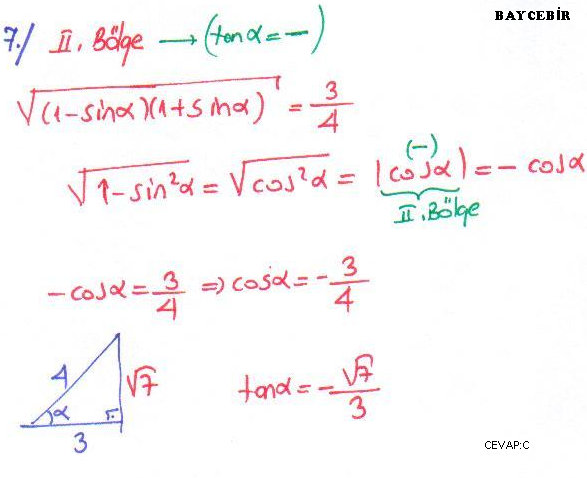 BAYCEBİR
7./ II. Bölge → (tanα = −)
√((1-sinα)(1+sinα)) = 3/4
√(1-sin²α) = √(cos²α) = |cosα| = - cosα
(-)
II. Bölge
-cosα = 3/4 ⇒ cosα = - 3/4
4 √7 α 3
tanα = - √7/3
CEVAP:C